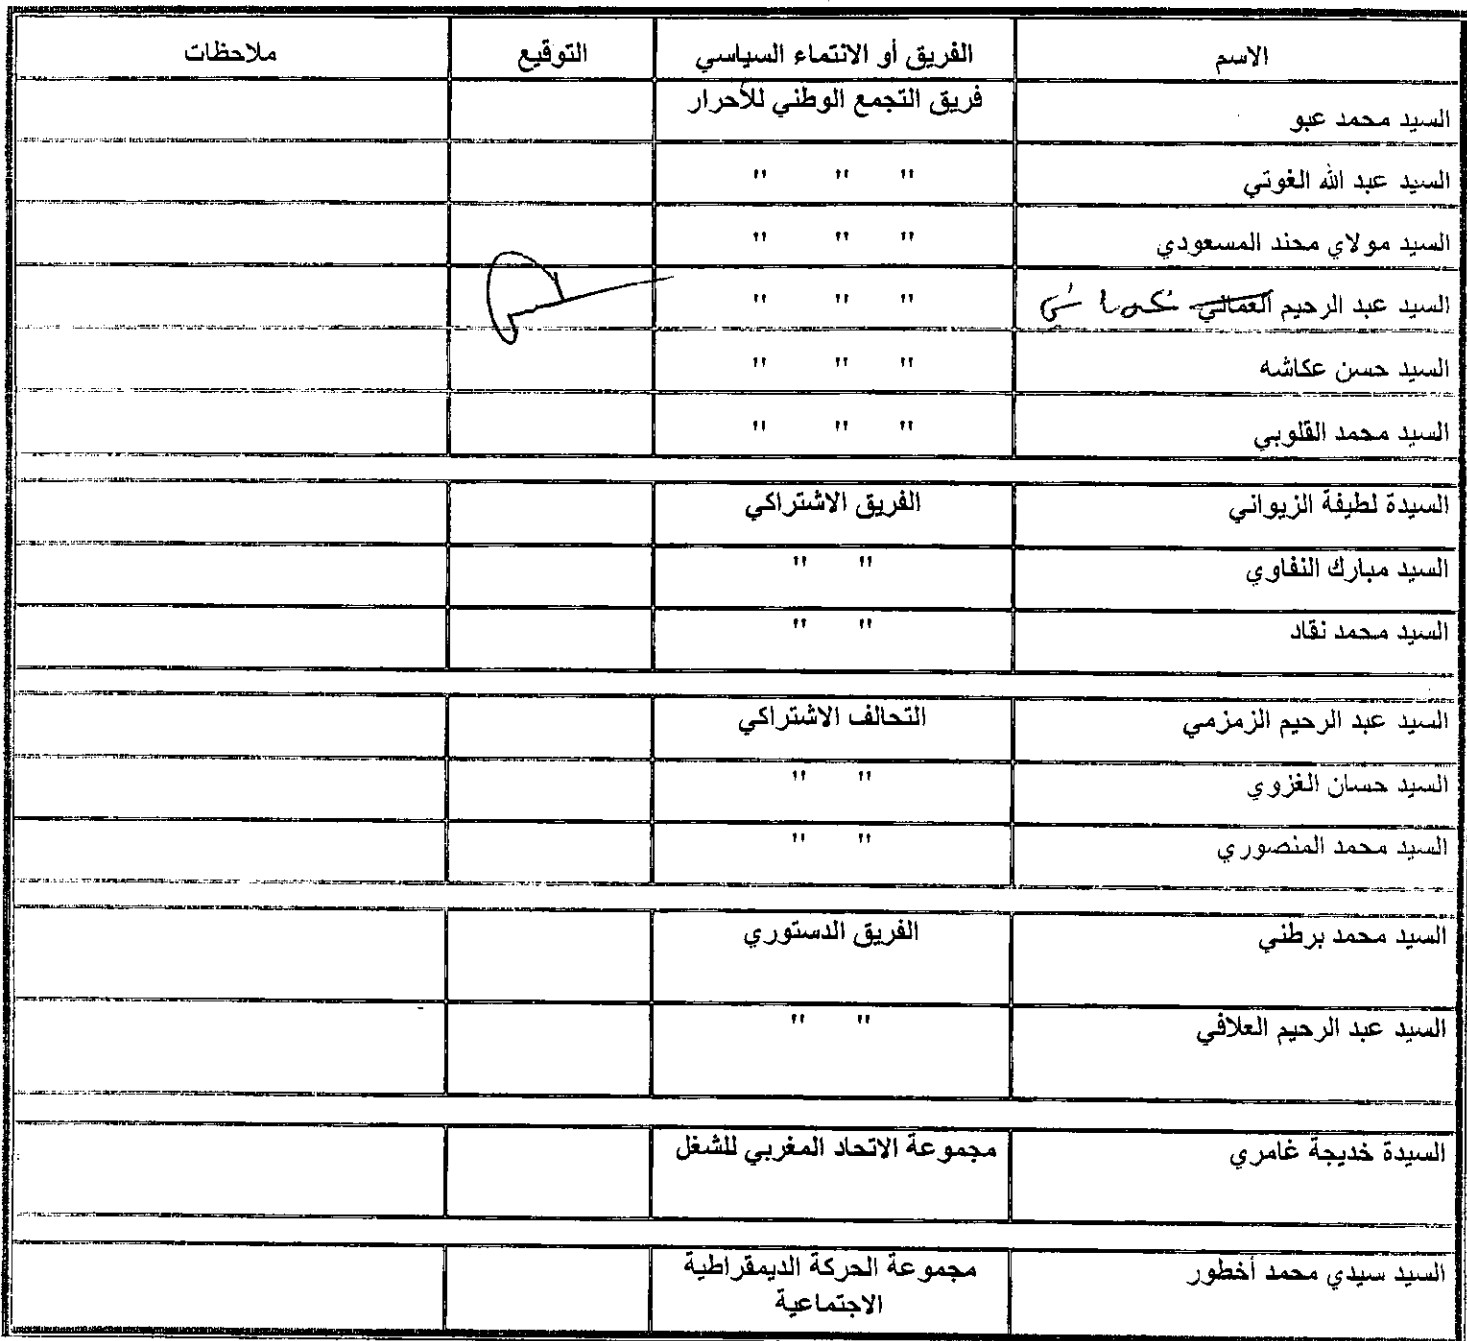 الاسم الفريق أو الانتماء السياسي التوقيع ملاحظات
السيد محمد عبو فريق التجمع الوطني للأحرار
السيد عبد الله الغوتي " " "
السيد مولاي محند المسعودي " " "
السيد عبد الرحيم العمالي " " "
السيد حسن عكاشه " " "
السيد محمد القلوبي " " "
السيدة لطيفة الزيواني الفريق الاشتراكي
السيد مبارك النفاوي " "
السيد محمد نقاد " "
السيد عبد الرحيم الزمزمي التحالف الاشتراكي
السيد حسان الغزوي " "
السيد محمد المنصوري " "
السيد محمد برطني الفريق الدستوري
السيد عبد الرحيم العلافي " "
السيدة خديجة غامري مجموعة الاتحاد المغربي للشغل
السيد سيدي محمد أخطور مجموعة الحركة الديمقراطية
الاجتماعية